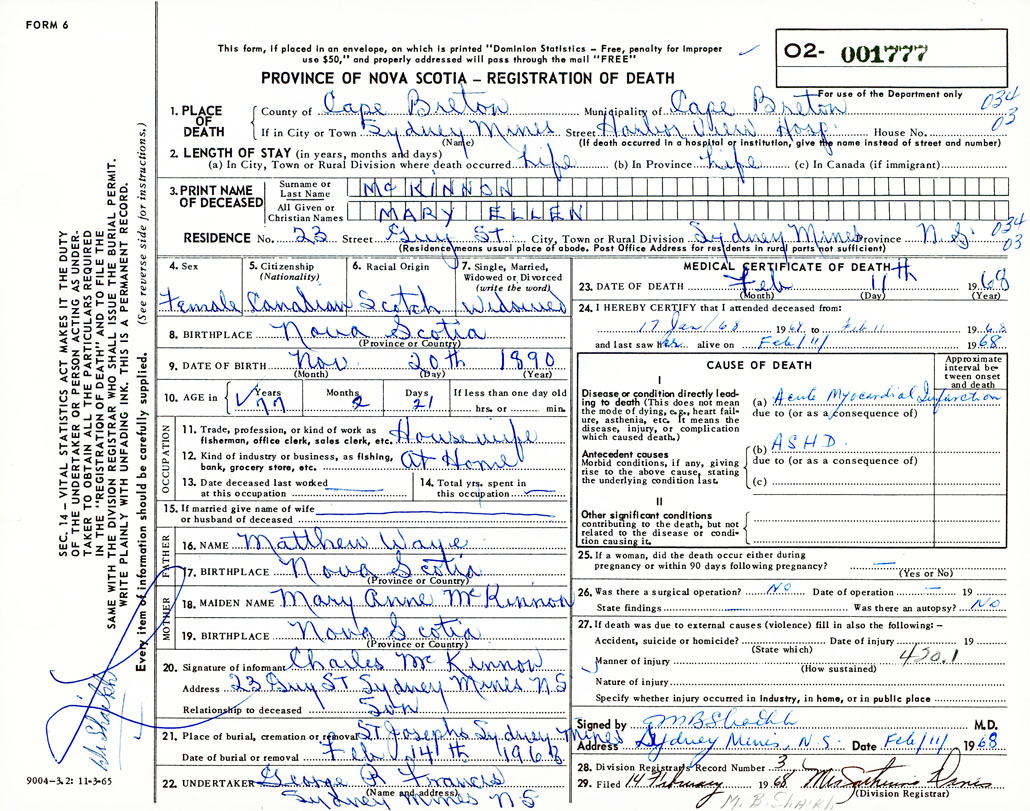 FORM 6
This form, if placed in an envelope, on which is printed "Dominion Statistics – Free, penalty for improper
use $50," and properly addressed will pass through the mail "FREE"
02- 001777
PROVINCE OF NOVA SCOTIA – REGISTRATION OF DEATH
For use of the Department only
034
03
1. PLACE OF DEATH County of Cape Breton Municipality of Cape Breton
If in City or Town Sydney Mines Street Harbor View Hosp. House No.
(Name) (If death occurred in a hospital or institution, give the name instead of street and number)
2. LENGTH OF STAY (in years, months and days)
(a) In City, Town or Rural Division where death occurred life (b) In Province life (c) In Canada (if immigrant)
3. PRINT NAME OF DECEASED
Surname or Last Name McKINNON
All Given or Christian Names MARY ELLEN
RESIDENCE No. 23 Street Guy St. City, Town or Rural Division Sydney Mines Province N.S. 034
03
(Residence means usual place of abode. Post Office Address for residents in rural parts not sufficient)
4. Sex Female
5. Citizenship (Nationality) Canadian
6. Racial Origin Scotch
7. Single, Married, Widowed or Divorced (write the word) Widowed
8. BIRTHPLACE Nova Scotia
(Province or Country)
9. DATE OF BIRTH Nov 20th 1890
(Month) (Day) (Year)
10. AGE in Years 77 Months 2 Days 21 If less than one day old
hrs. or min.
OCCUPATION
11. Trade, profession, or kind of work as
fisherman, office clerk, sales clerk, etc. Housewife
12. Kind of industry or business, as fishing,
bank, grocery store, etc. At Home
13. Date deceased last worked
at this occupation
14. Total yrs. spent in
this occupation
15. If married give name of wife
or husband of deceased
FATHER
16. NAME Matthew Waye
17. BIRTHPLACE Nova Scotia
(Province or Country)
MOTHER
18. MAIDEN NAME Mary Anne McKinnon
19. BIRTHPLACE Nova Scotia
(Province or Country)
20. Signature of informant Charles McKinnon
Address 23 Guy ST Sydney Mines N S
Relationship to deceased Son
21. Place of burial, cremation or removal ST Josephs Sydney Mines
Date of burial or removal Feb. 14th 1968
22. UNDERTAKER George R Francis
(Name and address)
Sydney Mines N S
MEDICAL CERTIFICATE OF DEATH
23. DATE OF DEATH Feb 11th 1968
(Month) (Day) (Year)
24. I HEREBY CERTIFY that I attended deceased from:
17 Jan/68 1968, to Feb 11 1968
and last saw her alive on Feb/11/ 1968
CAUSE OF DEATH
Approximate interval between onset and death
I
Disease or condition directly leading to death (This does not
mean the mode of dying, e.g., heart failure, asthenia, etc. It means the
disease, injury, or complication
which caused death.)
(a) Acute Myocardial Infarction
due to (or as a consequence of)
Antecedent causes
Morbid conditions, if any, giving
rise to the above cause, stating
the underlying condition last.
(b) ASHD.
due to (or as a consequence of)
(c)
II
Other significant conditions
contributing to the death, but not
related to the disease or condition causing it.
25. If a woman, did the death occur either during
pregnancy or within 90 days following pregnancy?
(Yes or No)
26. Was there a surgical operation? NO Date of operation 19
State findings Was there an autopsy? NO
27. If death was due to external causes (violence) fill in also the following: –
Accident, suicide or homicide? Date of injury 19
(State which)
Manner of injury 420.1
(How sustained)
Nature of injury
Specify whether injury occurred in Industry, in home, or in public place
Signed by MBShaikh M.D.
Address Sydney Mines, N.S. Date Feb/11/ 1968
28. Division Registrar's Record Number 3
29. Filed 14 February 1968
(Division Registrar)
M. B. SHAIKH
SEC. 14 – VITAL STATISTICS ACT MAKES IT THE DUTY
OF THE UNDERTAKER OR PERSON ACTING AS UNDER-
TAKER TO OBTAIN ALL THE PARTICULARS REQUIRED
IN THE "REGISTRATION OF DEATH" AND TO FILE THE
SAME WITH THE DIVISION REGISTRAR WHO SHALL ISSUE THE BURIAL PERMIT.
WRITE PLAINLY WITH UNFADING INK. THIS IS A PERMANENT RECORD.
Every item of information should be carefully supplied. (See reverse side for instructions.)
9004-3.2: 11-3-65